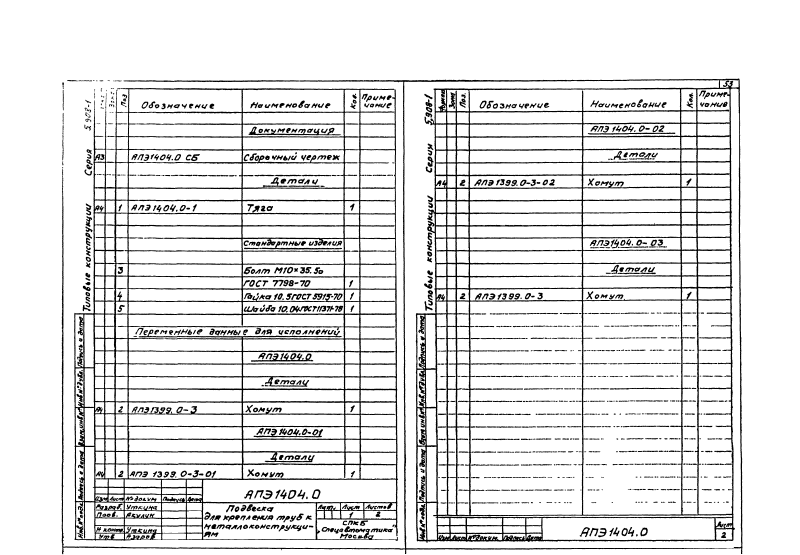 53
Серия 5.908-1
Типовые конструкции
Поз. Обозначение Наименование Кол. Приме-
чание
Документация
А3 АПЭ1404.0 СБ Сборочный чертеж
Детали
А4 1 АПЭ1404.0-1 Тяга 1
Стандартные изделия
3 Болт М10×35.5о
ГОСТ 7798-70 1
4 Гайка 10.5 ГОСТ 5915-70 1
5 Шайба 10.04 ГОСТ 11371-78 1
Переменные данные для исполнений
АПЭ1404.0
Детали
А4 2 АПЭ1399.0-3 Хомут 1
АПЭ1404.0-01
Детали
А4 2 АПЭ 1399.0-3-01 Хомут 1
АПЭ1404.0
Изм Лист №докум Подпись Дата
Разраб. Уткина
Пров. Акулин
Н контр. Уткина
Утв Азаров
Подвеска
для крепления труб к
металлоконструкци-
ям
Лит. Лист Листов
1 2
СПКБ
„Спецавтоматика"
Москва
Инв.№подл. Подпись и дата Взам.инв№ Инв№дубл. Подпись и дата
Серия 5.908-1
Типовые конструкции
Формат Зона Поз. Обозначение Наименование Кол. Приме-
чание
АПЭ1404.0-02
Детали
А4 2 АПЭ1399.0-3-02 Хомут 1
АПЭ1404.0-03
Детали
А4 2 АПЭ1399.0-3 Хомут 1
Инв.№подл. Подпись и дата Взам.инв№ Инв№дубл. Подпись и дата
Изм Лист №докум Подпись Дата
АПЭ1404.0
Лист
2